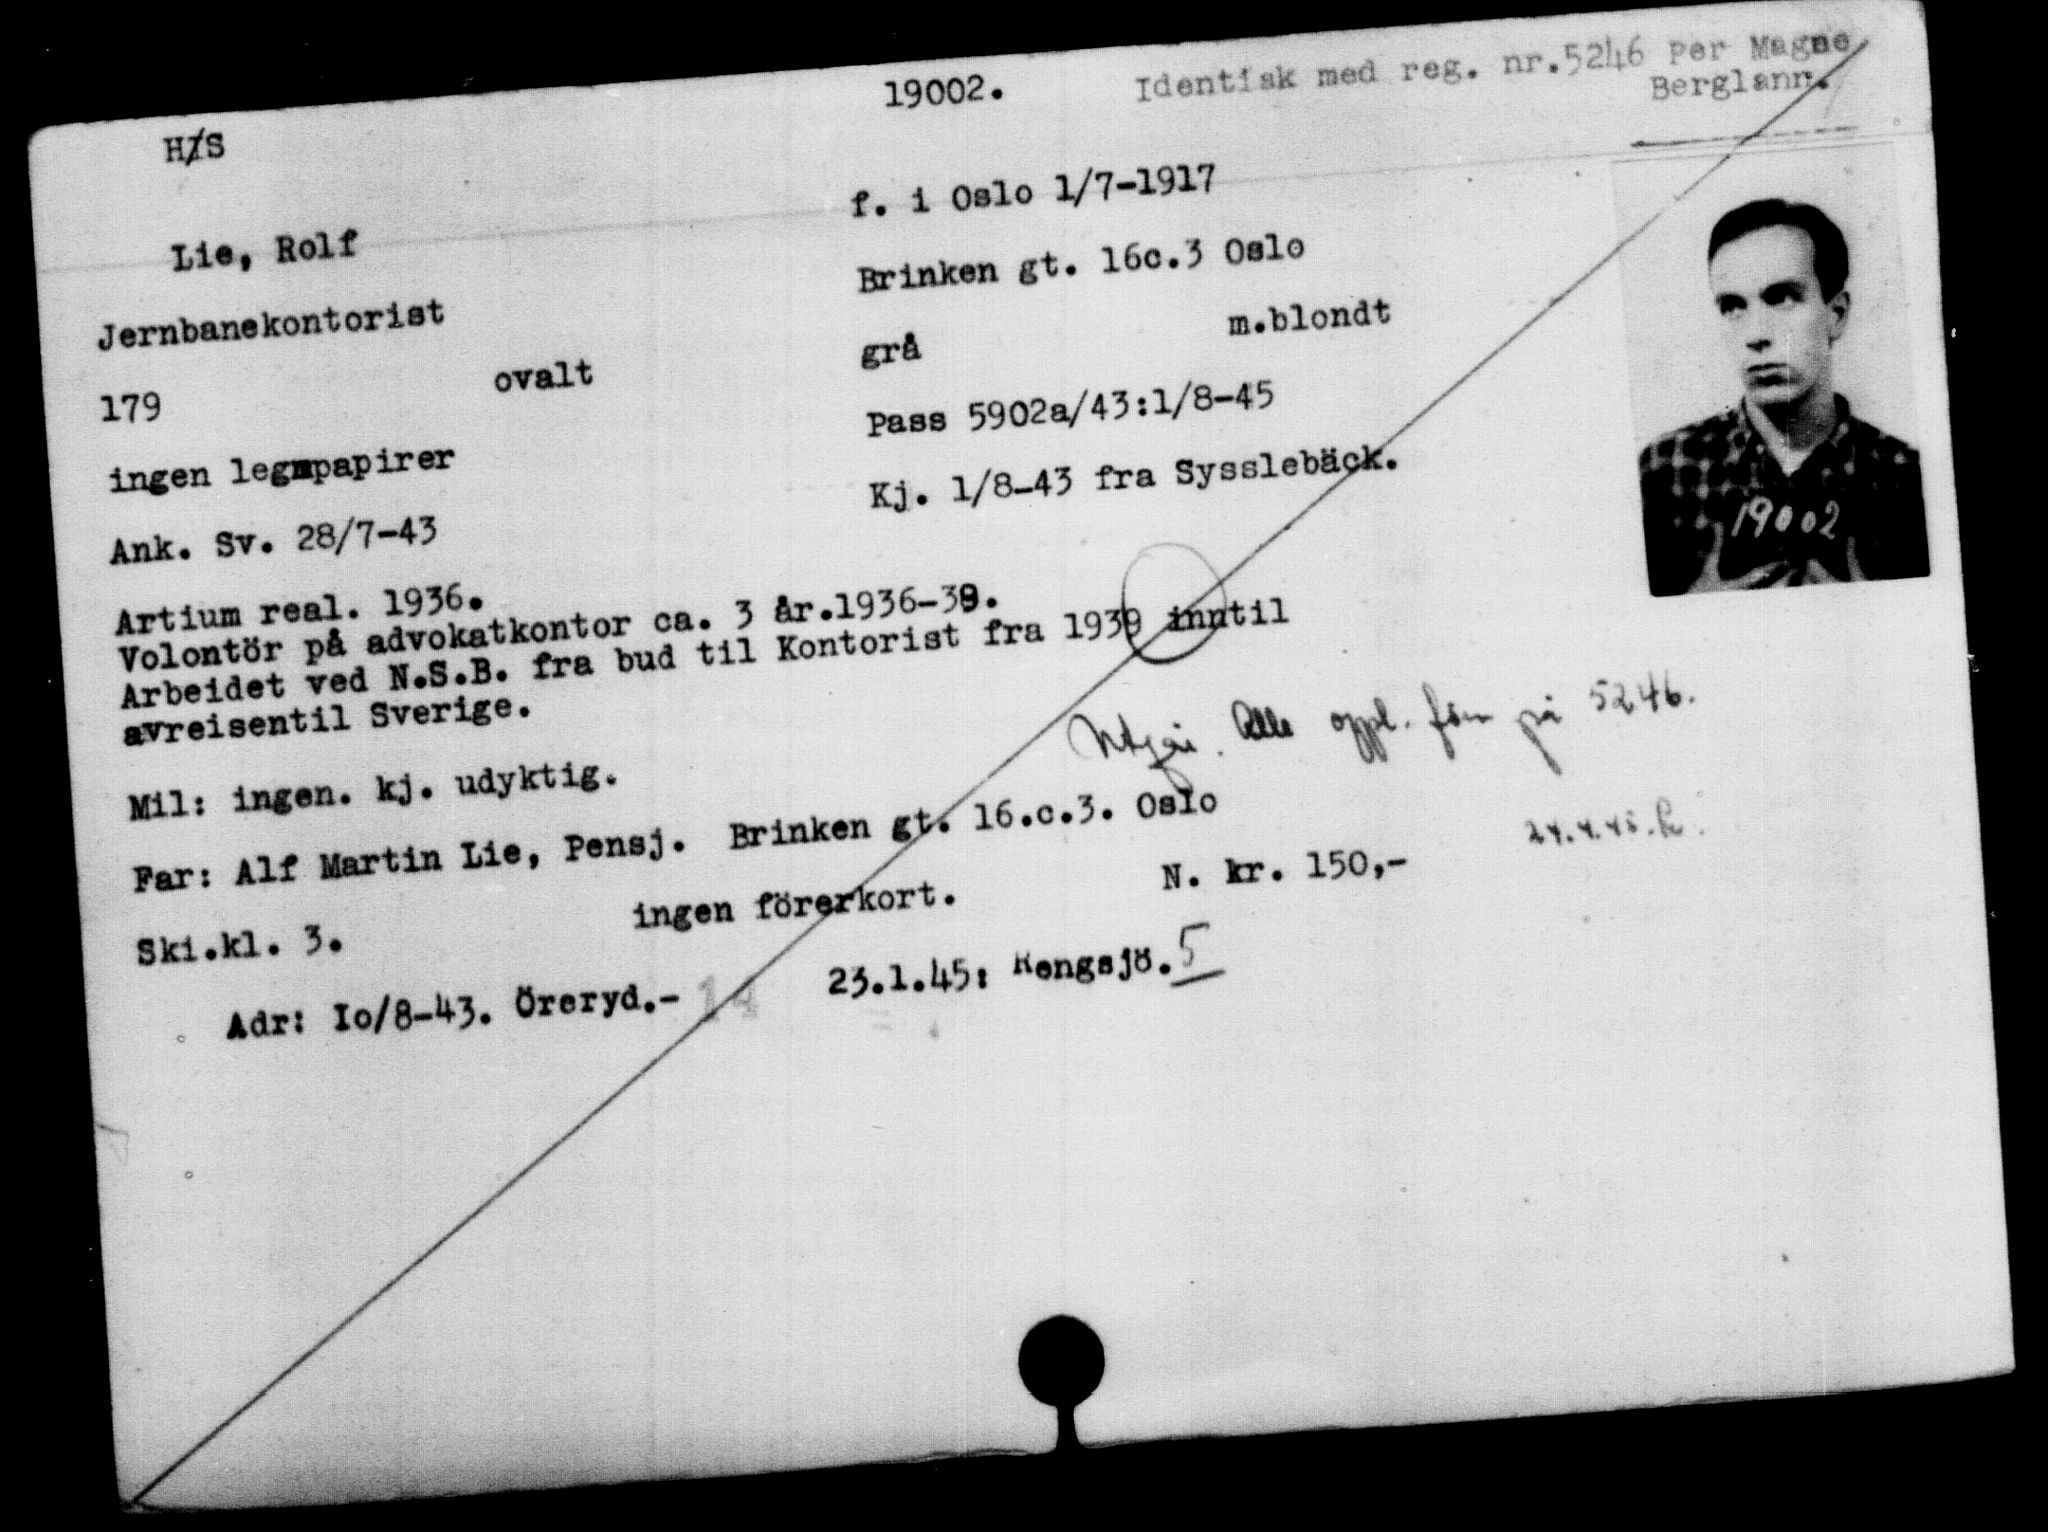 19002. Identisk med reg. nr.5246 Per Magne
Berglann.
H/S
f. i Oslo 1/7-1917
Lie, Rolf
Brinken gt. 16c.3 Oslo
Jernbanekontorist
grå m.blondt
179 ovalt
Pass 5902a/43:1/8-45
ingen legmpapirer
Kj. 1/8-43 fra Sysslebäck.
Ank. Sv. 28/7-43
19002
Artium real. 1936.
Volontör på advokatkontor ca. 3 år.1936-39.
Arbeidet ved N.S.B. fra bud til Kontorist fra 1939 inntil
avreisentil Sverige.
Utgår. Alle oppl. föres på 5246.
Mil: ingen. kj. udyktig.
24.4.45.
Far: Alf Martin Lie, Pensj. Brinken gt. 16.c.3. Oslo
Ski.kl. 3. ingen förerkort. N. kr. 150,-
Adr: Io/8-43. Öreryd.- 14 23.1.45: Rengsjö. 5